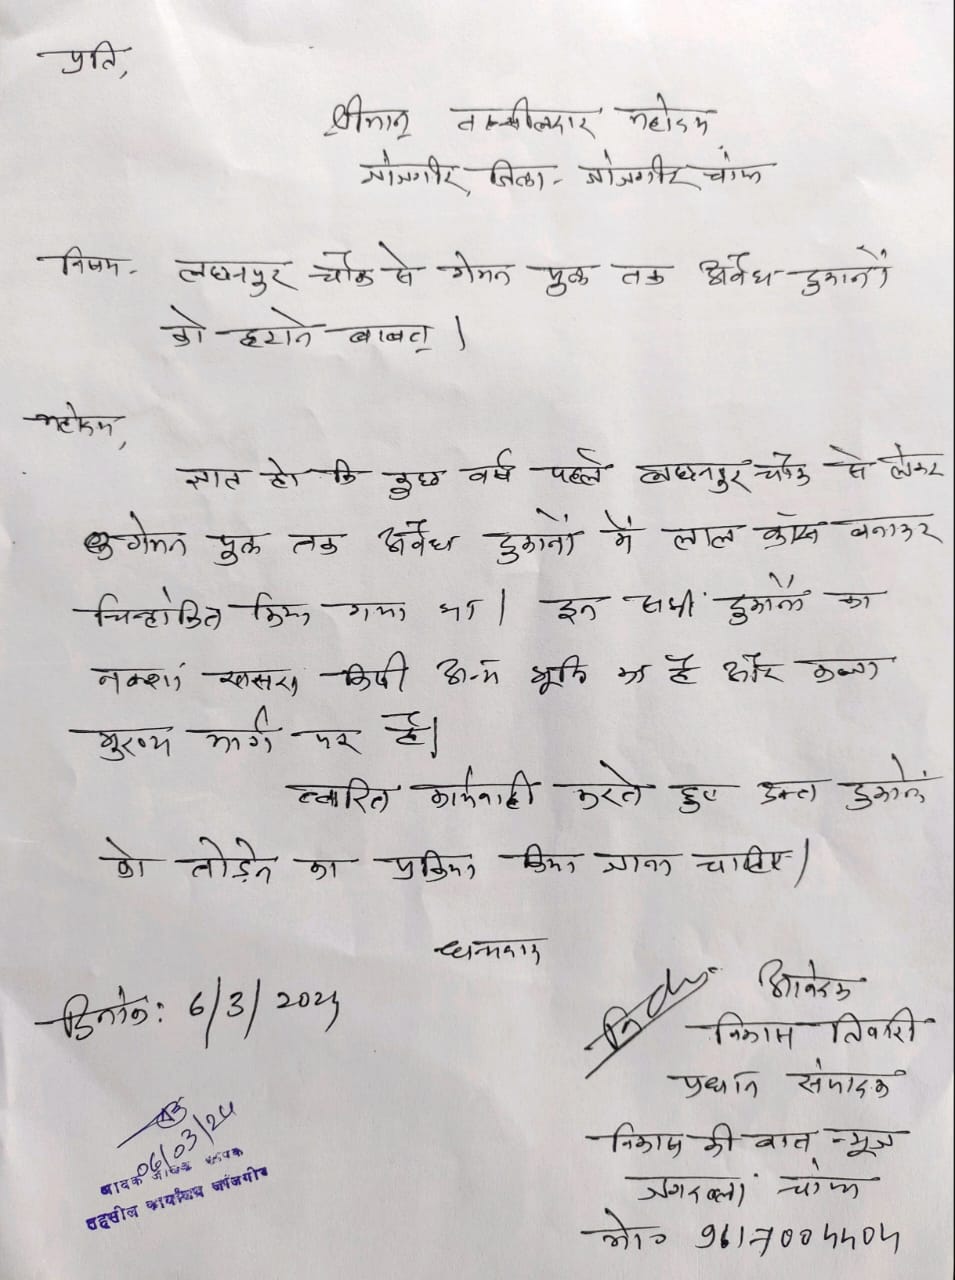 प्रति,
श्रीमान् तहसीलदार महोदय
जांजगीर, जिला- जांजगीर चांपा
विषय- लछनपुर चौक से गेमन पुल तक अवैध दुकानों
को हटाने बाबत् ।
महोदय,
ज्ञात हो कि कुछ वर्ष पहले लछनपुर चौक से लेकर
गेमन पुल तक अवैध दुकानों में लाल क्रॉस बनाकर
चिन्हांकित किया गया था । इन सभी दुकानों का
नक्शा खसरा किसी अन्य भूमि का है और कब्जा
मुख्य मार्ग पर है।
त्वरित कार्यवाही करते हुए उक्त दुकानों
को तोड़ने का प्रक्रिया किया जाना चाहिए।
धन्यवाद
दिनांक: 6/3/2024
आवेदक
विकास तिवारी
प्रधान संपादक
विकास की बात न्यूज
जगदल्ला चांपा
मो०
06/03/24
आवक जावक
तहसील कार्यालय जांजगीर